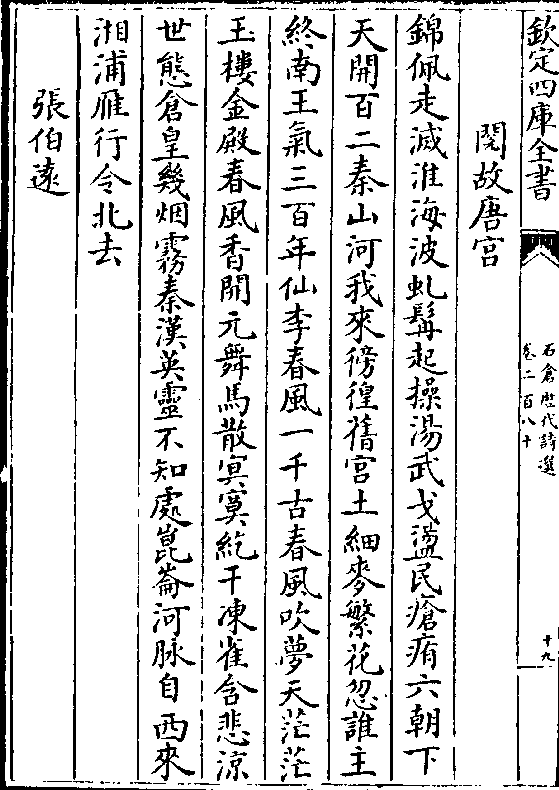 欽定四庫全書
石倉歷代詩選
卷二百八十
十九
閱故唐宮
錦佩走滅淮海波虬髯起操湯武戈盪民瘡痏六朝下
天開百二秦山河我來徬徨舊宮土細麥繁花忽誰主
終南王氣三百年仙李春風一千古春風吹夢天茫茫
玉樓金殿春風香開元舞馬散寞寞紇干凍雀含悲涼
世態倉皇幾烟霧秦漢英靈不知處崑崙河脉自西來
湘浦雁行令北去
張伯遠